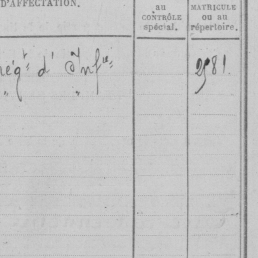 D'AFFECTATION.
au
CONTRÔLE
spécial.
MATRICULE
ou au
répertoire.
rég.t d' Inf.ie
" "